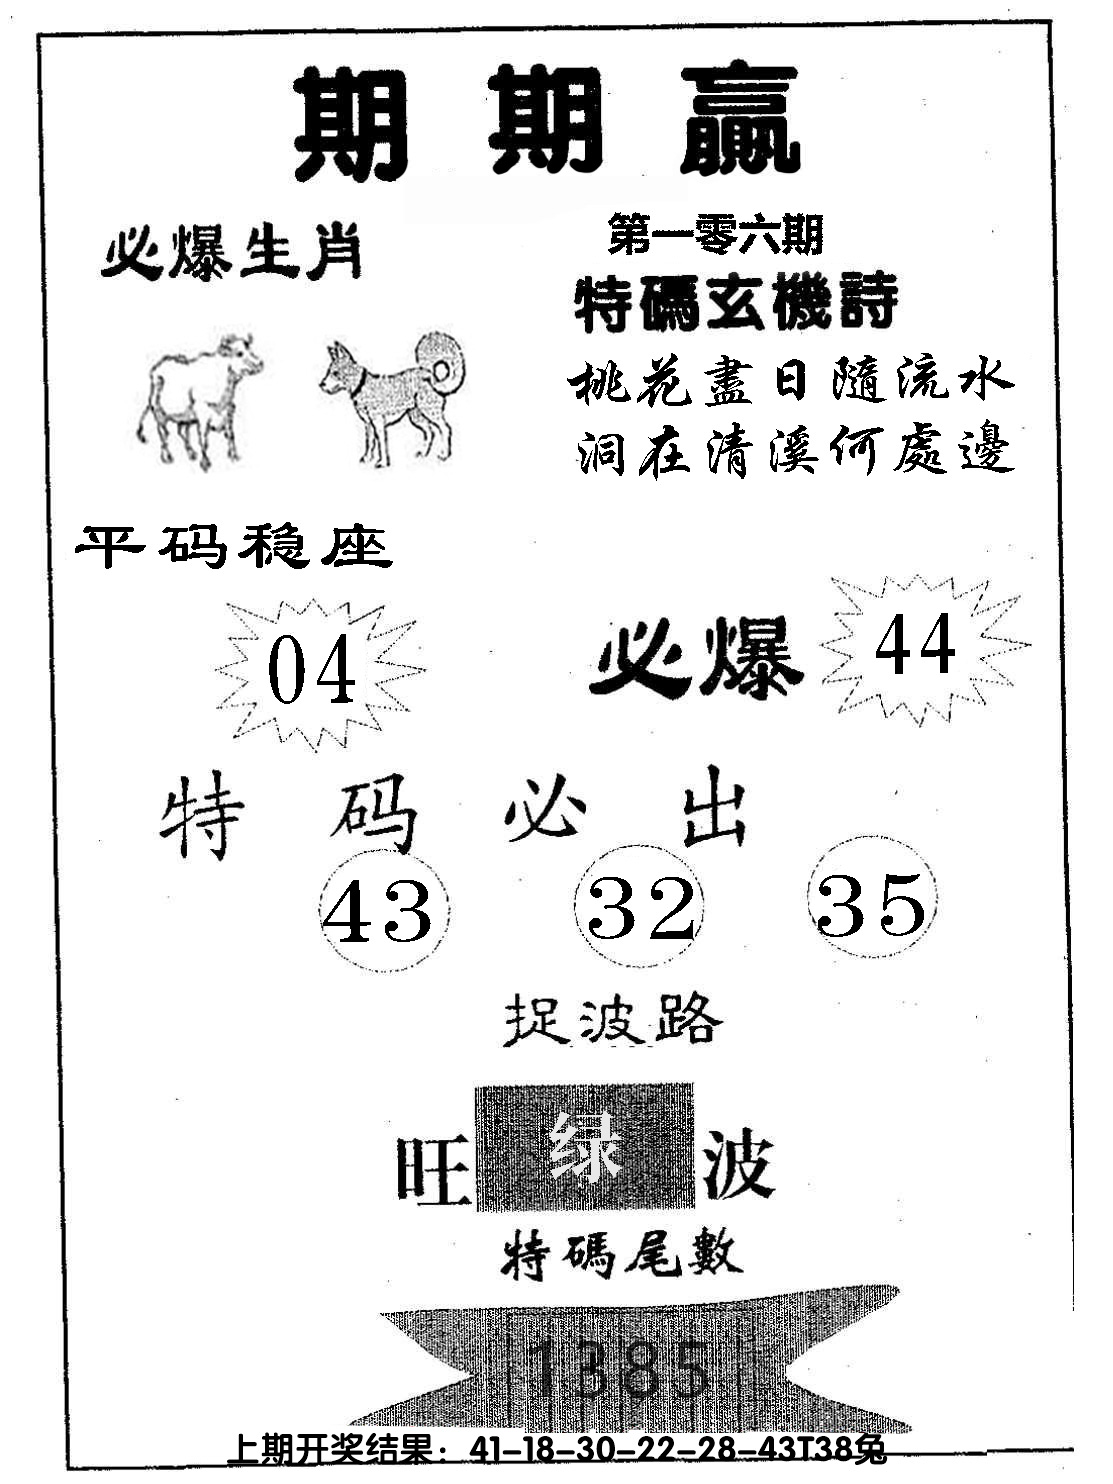 期期贏
第一零六期
必爆生肖
特碼玄機詩
桃花盡日隨流水
洞在清溪何處邊
平码稳座
04
必爆
44
特码必出
43 32 35
捉波路
旺绿波
特碼尾數
1385
上期开奖结果：41-18-30-22-28-43T38兔